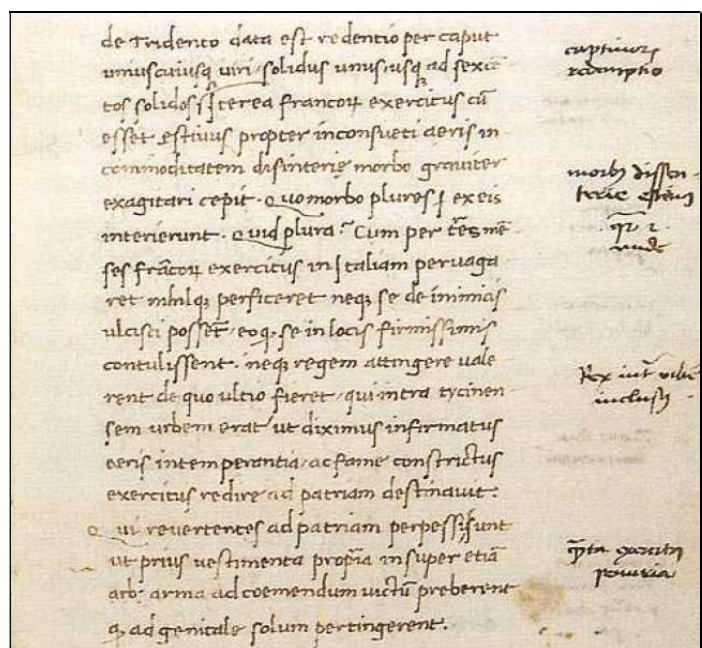 de Tridento data est redentio per caput
uniuscuiusq; viri solidus unus usq; ad sexcē
tos solidos Iterea francoꝝ exercitus cū
esset estivus propter inconsueti aeris in
commoditatem disinterię morbo graviter
exagitari cepit. Quo morbo plures ex eis
interierunt. Quid plura? Cum per t̄es mē
ses frācoꝝ exercitus in Italiam pervaga
ret nihilq; perficeret neq; se de inimicis
ulcisci posset, eo q; se in locis firmissimis
contulissent. neq; regem attingere vale
rent de quo ultio fieret, qui intra tycinen
sem urbem erat ut diximus infirmatus
aeris intemperantia, ac fame constrictus
exercitus redire ad patriam destinavit.
Qui revertentes ad patriam perpessi sunt
ut prius vestimenta propia insuper etiā
arma ad coemendum victū preberent
q; ad genitale solum pertingerent.
captivoꝝ
redemptio
morb; dissen
terie
Rex int̄ urbē
inclusꝰ
penuria